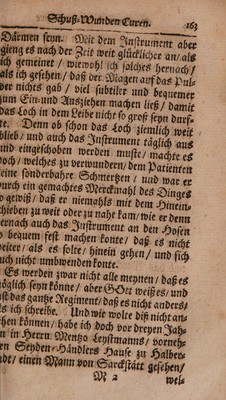 Schuß-Wunden Curen. 163
Därmen seyn. Mit dem Instrument aber
gieng es nach der Zeit weit glücklicher an/ als
ich gemeinet / wiewohl ich solches hernach/
als ich gesehen/ daß der Magen auf das Pul-
ver niches gab/ viel subtiler und bequemer
zum Ein- und Ausziehen machen ließ/ damit
das Loch in dem Leibe nicht so groß seyn durf-
te. Denn ob schon das Loch ziemlich weit
blieb/ und auch das Instrument täglich aus
und eingeschoben werden muste/ machte es
doch/ welches zu verwundern/ dem Patienten
keine sonderbahre Schmertzen/ und war er
durch ein gemachtes Merckmahl des Dinges
so gewiß/ daß er niemahls mit dem Hinein-
schieben zu weit oder zu nahe kam/ wie er denn
hernach auch das Instrument an den Hosen
so bequem fest machen konte/ daß es nicht
weiter/ als es solte/ hinein gehen/ und sich
auch nicht umbwenden konte.
Es werden zwar nicht alle meynen/ daß es
möglich seyn könne/ aber GOtt weiß es/ und
fast das gantze Regiment/ daß es nicht anders/
als ich schreibe. Und wie wolte diß nicht an-
gehen können/ habe ich doch vor dreyen Jah-
ren in Herrn Mentzo Leystmanns/ vorneh-
men Seyden-Händlers Hause zu Halber-
stadt/ einen Mann von Sarckstätt gesehen/
M 2 wel-